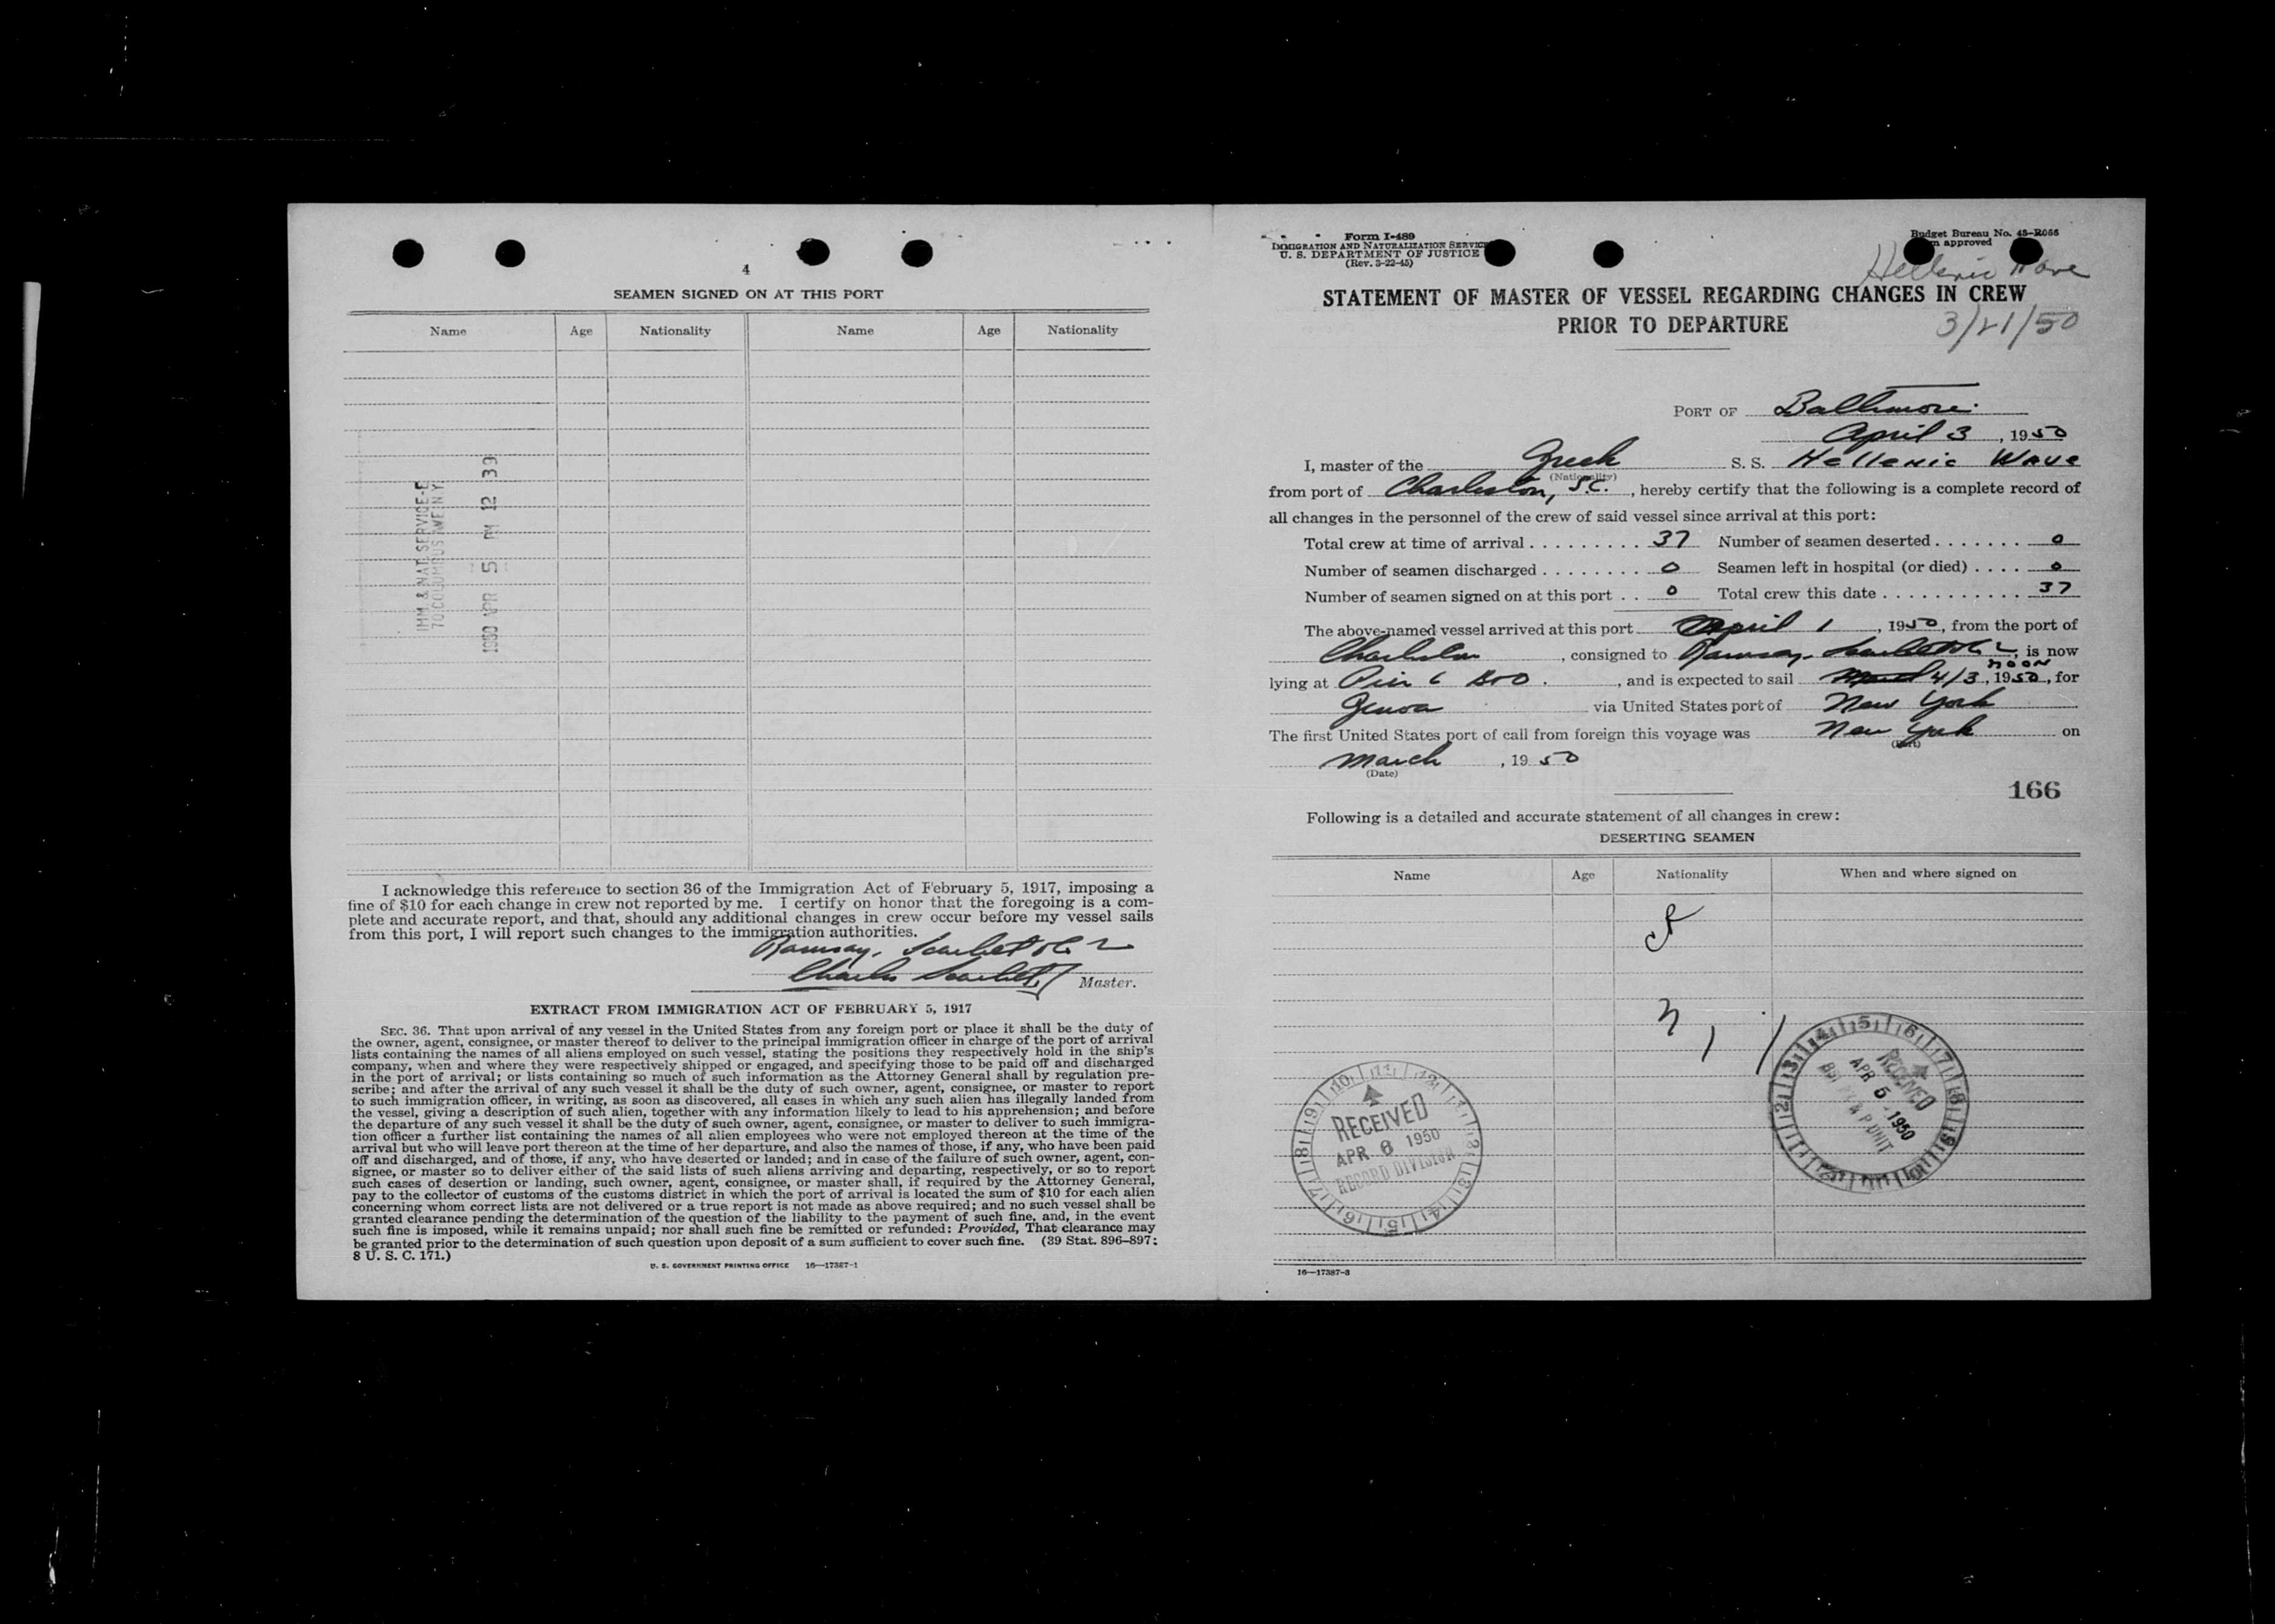 4
SEAMEN SIGNED ON AT THIS PORT
Name Age Nationality Name Age Nationality
IMM & NAT SERVICE-E
70 COLUMBUS AVE N Y
1950 APR 5 PM 12 39
I acknowledge this reference to section 36 of the Immigration Act of February 5, 1917, imposing a
fine of $10 for each change in crew not reported by me. I certify on honor that the foregoing is a com-
plete and accurate report, and that, should any additional changes in crew occur before my vessel sails
from this port, I will report such changes to the immigration authorities.
Ramsay, Scarlett & Co
Charles Scarlett Master.
EXTRACT FROM IMMIGRATION ACT OF FEBRUARY 5, 1917
SEC. 36. That upon arrival of any vessel in the United States from any foreign port or place it shall be the duty of
the owner, agent, consignee, or master thereof to deliver to the principal immigration officer in charge of the port of arrival
lists containing the names of all aliens employed on such vessel, stating the positions they respectively hold in the ship's
company, when and where they were respectively shipped or engaged, and specifying those to be paid off and discharged
in the port of arrival; or lists containing so much of such information as the Attorney General shall by regulation pre-
scribe; and after the arrival of any such vessel it shall be the duty of such owner, agent, consignee, or master to report
to such immigration officer, in writing, as soon as discovered, all cases in which any such alien has illegally landed from
the vessel, giving a description of such alien, together with any information likely to lead to his apprehension; and before
the departure of any such vessel it shall be the duty of such owner, agent, consignee, or master to deliver to such immigra-
tion officer a further list containing the names of all alien employees who were not employed thereon at the time of the
arrival but who will leave port thereon at the time of her departure, and also the names of those, if any, who have been paid
off and discharged, and of those, if any, who have deserted or landed; and in case of the failure of such owner, agent, con-
signee, or master so to deliver either of the said lists of such aliens arriving and departing, respectively, or so to report
such cases of desertion or landing, such owner, agent, consignee, or master shall, if required by the Attorney General,
pay to the collector of customs of the customs district in which the port of arrival is located the sum of $10 for each alien
concerning whom correct lists are not delivered or a true report is not made as above required; and no such vessel shall be
granted clearance pending the determination of the question of the liability to the payment of such fine, and, in the event
such fine is imposed, while it remains unpaid; nor shall such fine be remitted or refunded: Provided, That clearance may
be granted prior to the determination of such question upon deposit of a sum sufficient to cover such fine. (39 Stat. 896–897;
8 U. S. C. 171.)
U. S. GOVERNMENT PRINTING OFFICE 16—17387-1
Form I-489
IMMIGRATION AND NATURALIZATION SERVICE
U. S. DEPARTMENT OF JUSTICE
(Rev. 3-22-45)
Budget Bureau No. 43-R066
approved
Hellenic Wave
STATEMENT OF MASTER OF VESSEL REGARDING CHANGES IN CREW
PRIOR TO DEPARTURE
3/21/50
PORT OF Baltimore.
April 3, 1950
I, master of the Greek S. S. Hellenic Wave
(Nationality)
from port of Charleston, S.C., hereby certify that the following is a complete record of
all changes in the personnel of the crew of said vessel since arrival at this port:
Total crew at time of arrival . . . . . . . . . 37 Number of seamen deserted . . . . . . . 0
Number of seamen discharged . . . . . . . . 0 Seamen left in hospital (or died) . . . . 0
Number of seamen signed on at this port . . 0 Total crew this date . . . . . . . . . . . 37
The above-named vessel arrived at this port April 1, 1950, from the port of
Charleston, consigned to Ramsay, Scarlett & Co, is now
noon
lying at Pier 6 B&O., and is expected to sail 4/3, 1950, for
Genoa via United States port of New York
The first United States port of call from foreign this voyage was New York on
(Port)
March, 1950
(Date)
166
Following is a detailed and accurate statement of all changes in crew:
DESERTING SEAMEN
Name Age Nationality When and where signed on
RECEIVED
APR 6 1950
RECORD DIVISION
RECEIVED
APR 5 - 1950
UNIT
16—17387-3